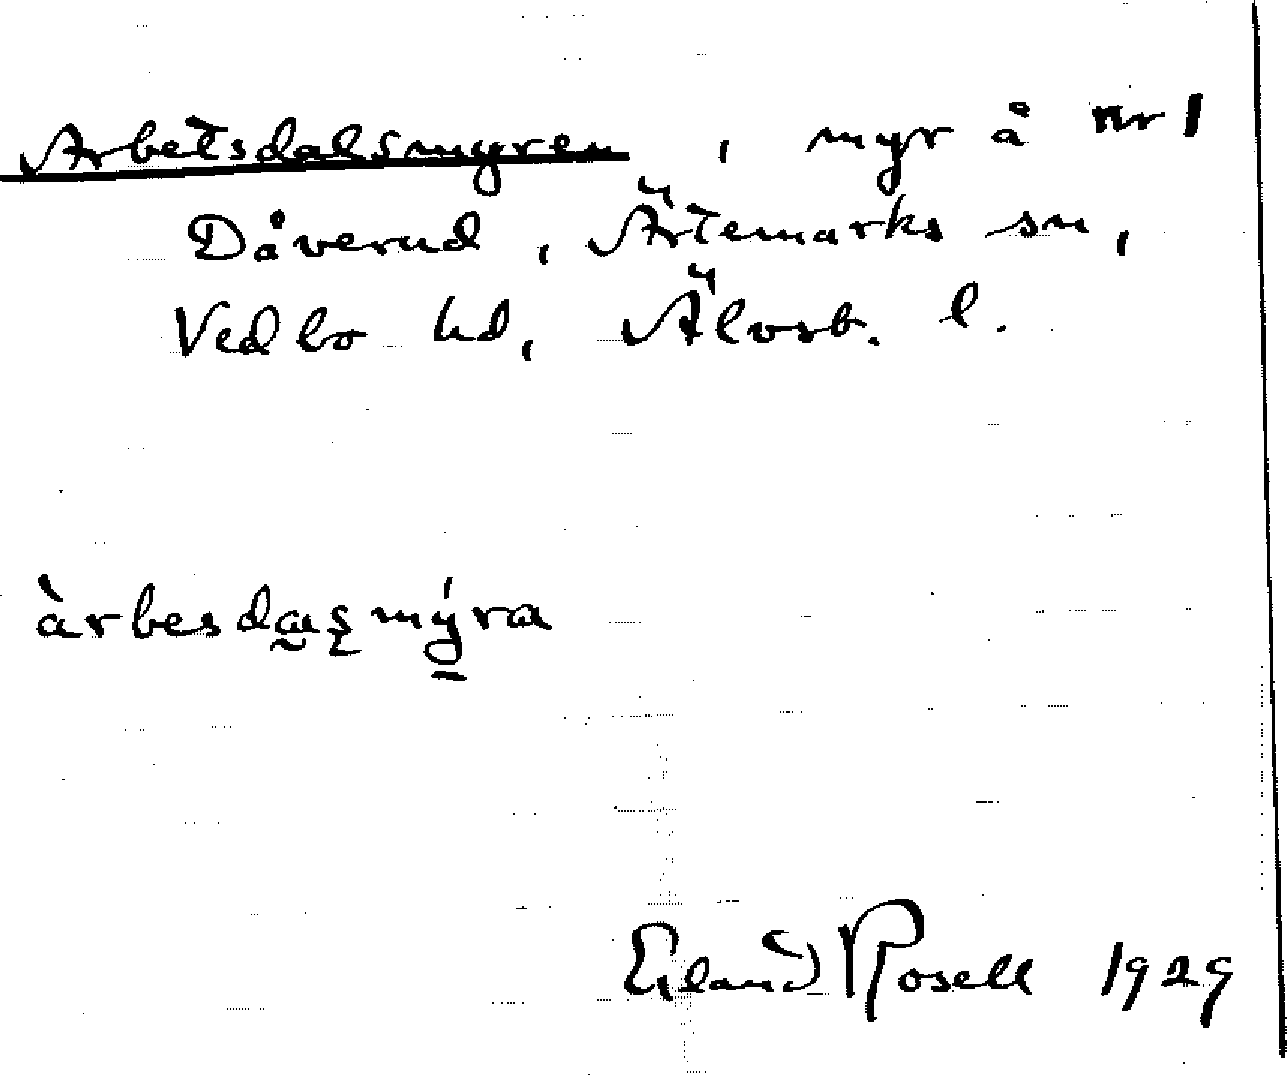 Arbetsdalsmyren, myr å nr 1
Dåverud, Ärtemarks sn,
Vedbo hd, Älvsb. l.
àrbesdas̨mýra
Erland Rosell 1929